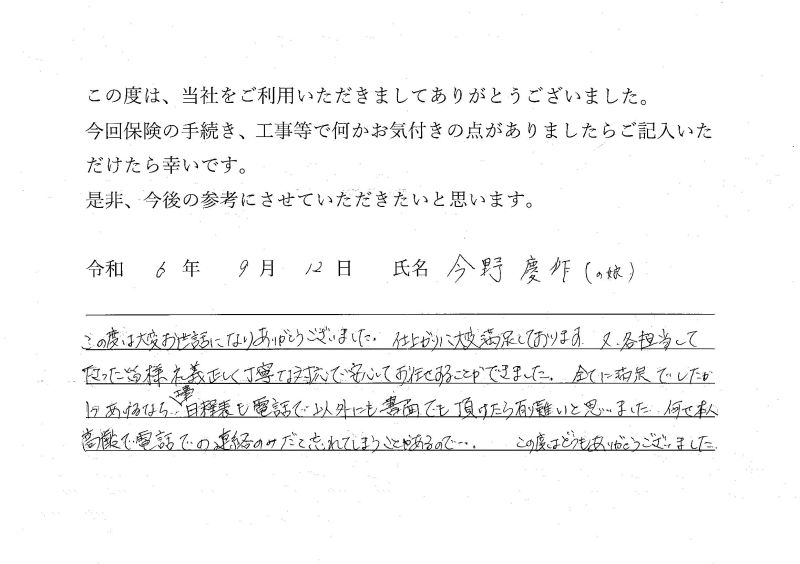 この度は、当社をご利用いただきましてありがとうございました。
今回保険の手続き、工事等で何かお気付きの点がありましたらご記入いた
だけたら幸いです。
是非、今後の参考にさせていただきたいと思います。
令和 6 年 9 月 12 日 氏名 今野 慶作 (の娘)
この度は大変お世話になりありがとうございました。仕上がりに大変満足しております。又、各担当して
下さった皆様 礼義正しく丁寧な対応で安心してお任せすることができました。全てに満足でしたが
1つあげるなら、工事日程表も電話で以外にも書面でも頂けたら有難いと思いました。何せ本人
高齢で電話での連絡のみだと忘れてしまうことがあるので…。 この度はどうもありがとうございました